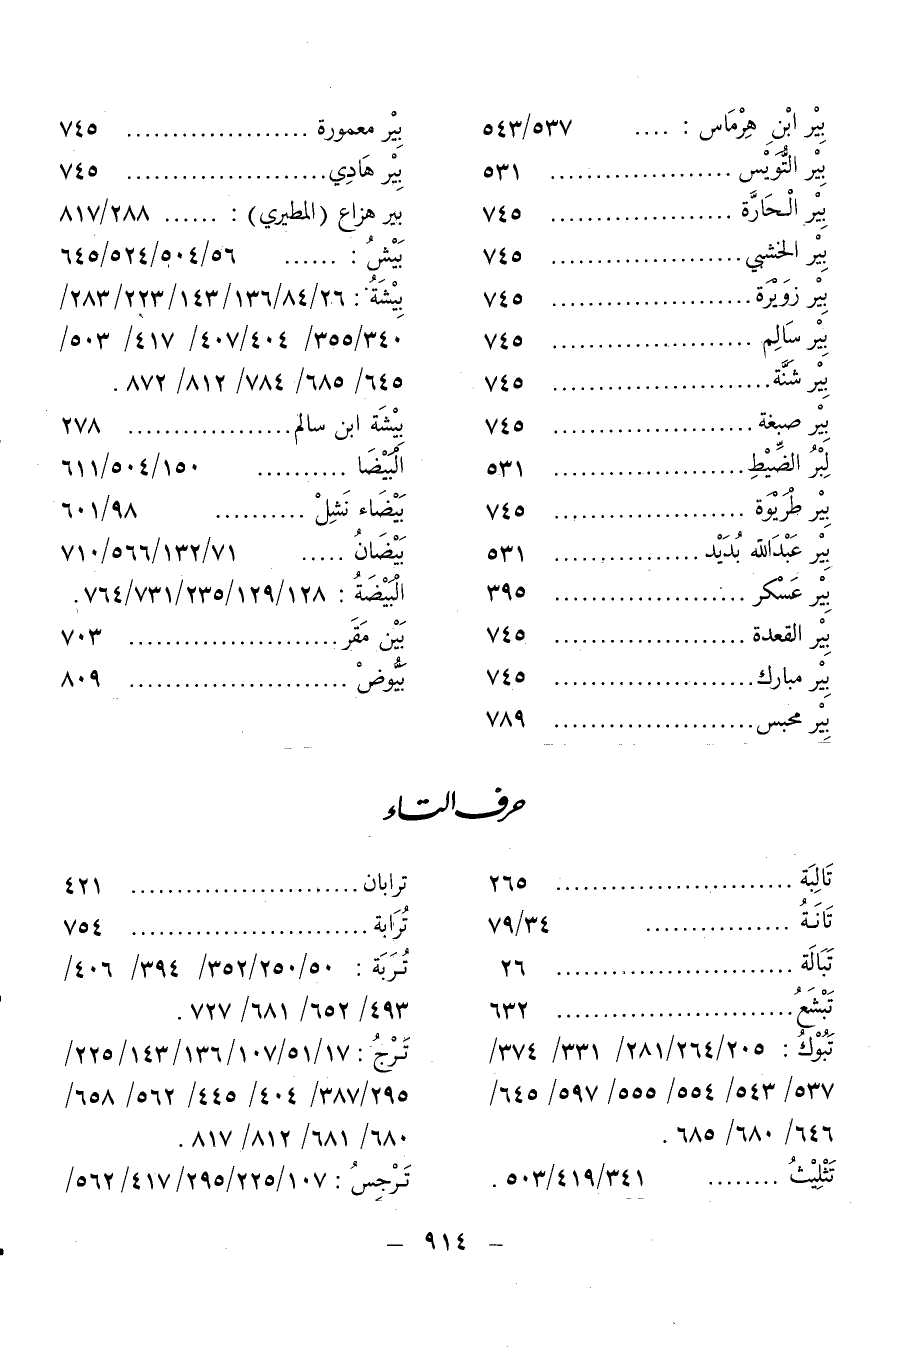 بِيْر ابْنِ هِرْمَاس : .... ٥٤٣/٥٣٧
بِيْر التُّوَيْس .................... ٥٣١
بِيْر الْحَارَّة .................... ٧٤٥
بِيْر الخشبي..................... ٧٤٥
بِيْر زوَيْرَة..................... ٧٤٥
بِيْر سَالِم ...................... ٧٤٥
بِيْر شَنَّة........................ ٧٤٥
بِيْر صبغة ...................... ٧٤٥
لِبْرُ الضِّيْطِ..................... ٥٣١
بِيْر طُرَيْوَة ..................... ٧٤٥
بِيْر عَبْدَالله بُدَيْد ................ ٥٣١
بِيْر عَسْكر ..................... ٣٩٥
بِيْر القعدة ..................... ٧٤٥
بِيْر مبارك...................... ٧٤٥
بِيْر محبس...................... ٧٨٩
بِيْر معمورة .................... ٧٤٥
بِيْر هَادِي...................... ٧٤٥
بير هزاع (المطيري) : ...... ٨١٧/٢٨٨
بَيْشُ : ...... ٦٤٥/٥٢٤/٥٠٤/٥٦
بِيْشَةُ : ٢٦/٨٤/١٣٦/١٤٣/٢٢٣/٢٨٣/
٣٤٠/٣٥٥/ ٤٠٤/٤٠٧/ ٤١٧/ ٥٠٣/
٦٤٥/ ٦٨٥/ ٧٨٤/ ٨١٢/ ٨٧٢ .
بِيْشَة ابن سالم.................. ٢٧٨
الْبَيْضَا .......... ٦١١/٥٠٤/١٥٠
بَيْضَاء نَشِلْ .......... ٦٠١/٩٨
بَيْضَانُ ..... ٧١٠/٥٦٦/١٣٢/٧١
الْبَيْضَةُ : ١٢٨/١٢٩/٢٣٥/٧٣١/٧٦٤.
بَيْن مَقَر....................... ٧٠٣
بَيُّوضْ ........................ ٨٠٩
حرف التاء
تَالِبَة .......................... ٢٦٥
تَانَةُ ................ ٧٩/٣٤
تَبَالَة .......................... ٢٦
تَبْشَعُ.......................... ٦٣٢
تَبُوْكُ : ٢٠٥/٢٦٤/٢٨١/ ٣٣١/ ٣٧٤/
٥٣٧/ ٥٤٣/ ٥٥٤/ ٥٥٥/ ٥٩٧/ ٦٤٥/
٦٤٦/ ٦٨٠/ ٦٨٥ .
تَثْلِيْثُ ........ ٥٠٣/٤١٩/٣٤١ .
ترابان......................... ٤٢١
تُرَابة.......................... ٧٥٤
تُرَبَة : ٥٠/٢٥٠/٣٥٢/ ٣٩٤/ ٤٠٦/
٤٩٣/ ٦٥٢/ ٦٨١/ ٧٢٧ .
تَرْجُ : ١٧/٥١/١٠٧/١٣٦/١٤٣/٢٢٥/
٢٩٥/٣٨٧/ ٤٠٤/ ٤٤٥/ ٥٦٢/ ٦٥٨/
٦٨٠/ ٦٨١/ ٨١٢/ ٨١٧ .
تَرْجِسُ : ١٠٧/٢٢٥/٢٩٥/٤١٧/٥٦٢/
– ٩١٤ –